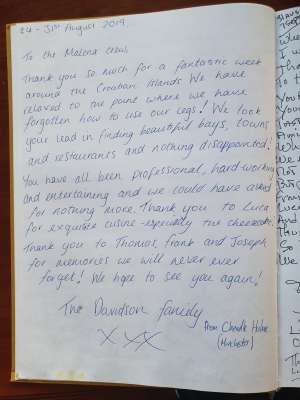 24 - 31st August 2019.
To the Malena crew,
Thank you so much for a fantastic week
around the Croatian Islands. We have
relaxed to the point where we have
forgotten how to use our legs! We took
your lead in finding beautiful bays, towns
and restaurants and nothing disappointed!
You have all been professional, hard-working
and entertaining and we could have asked
for nothing more. Thank you to Luca
for exquisite cuisine - especially the cheesecake.
Thank you to Thomas, Frank and Joseph
for memories we will never ever
forget! We hope to see you again!
The Davidson family
XXX
From Cheadle Hulme